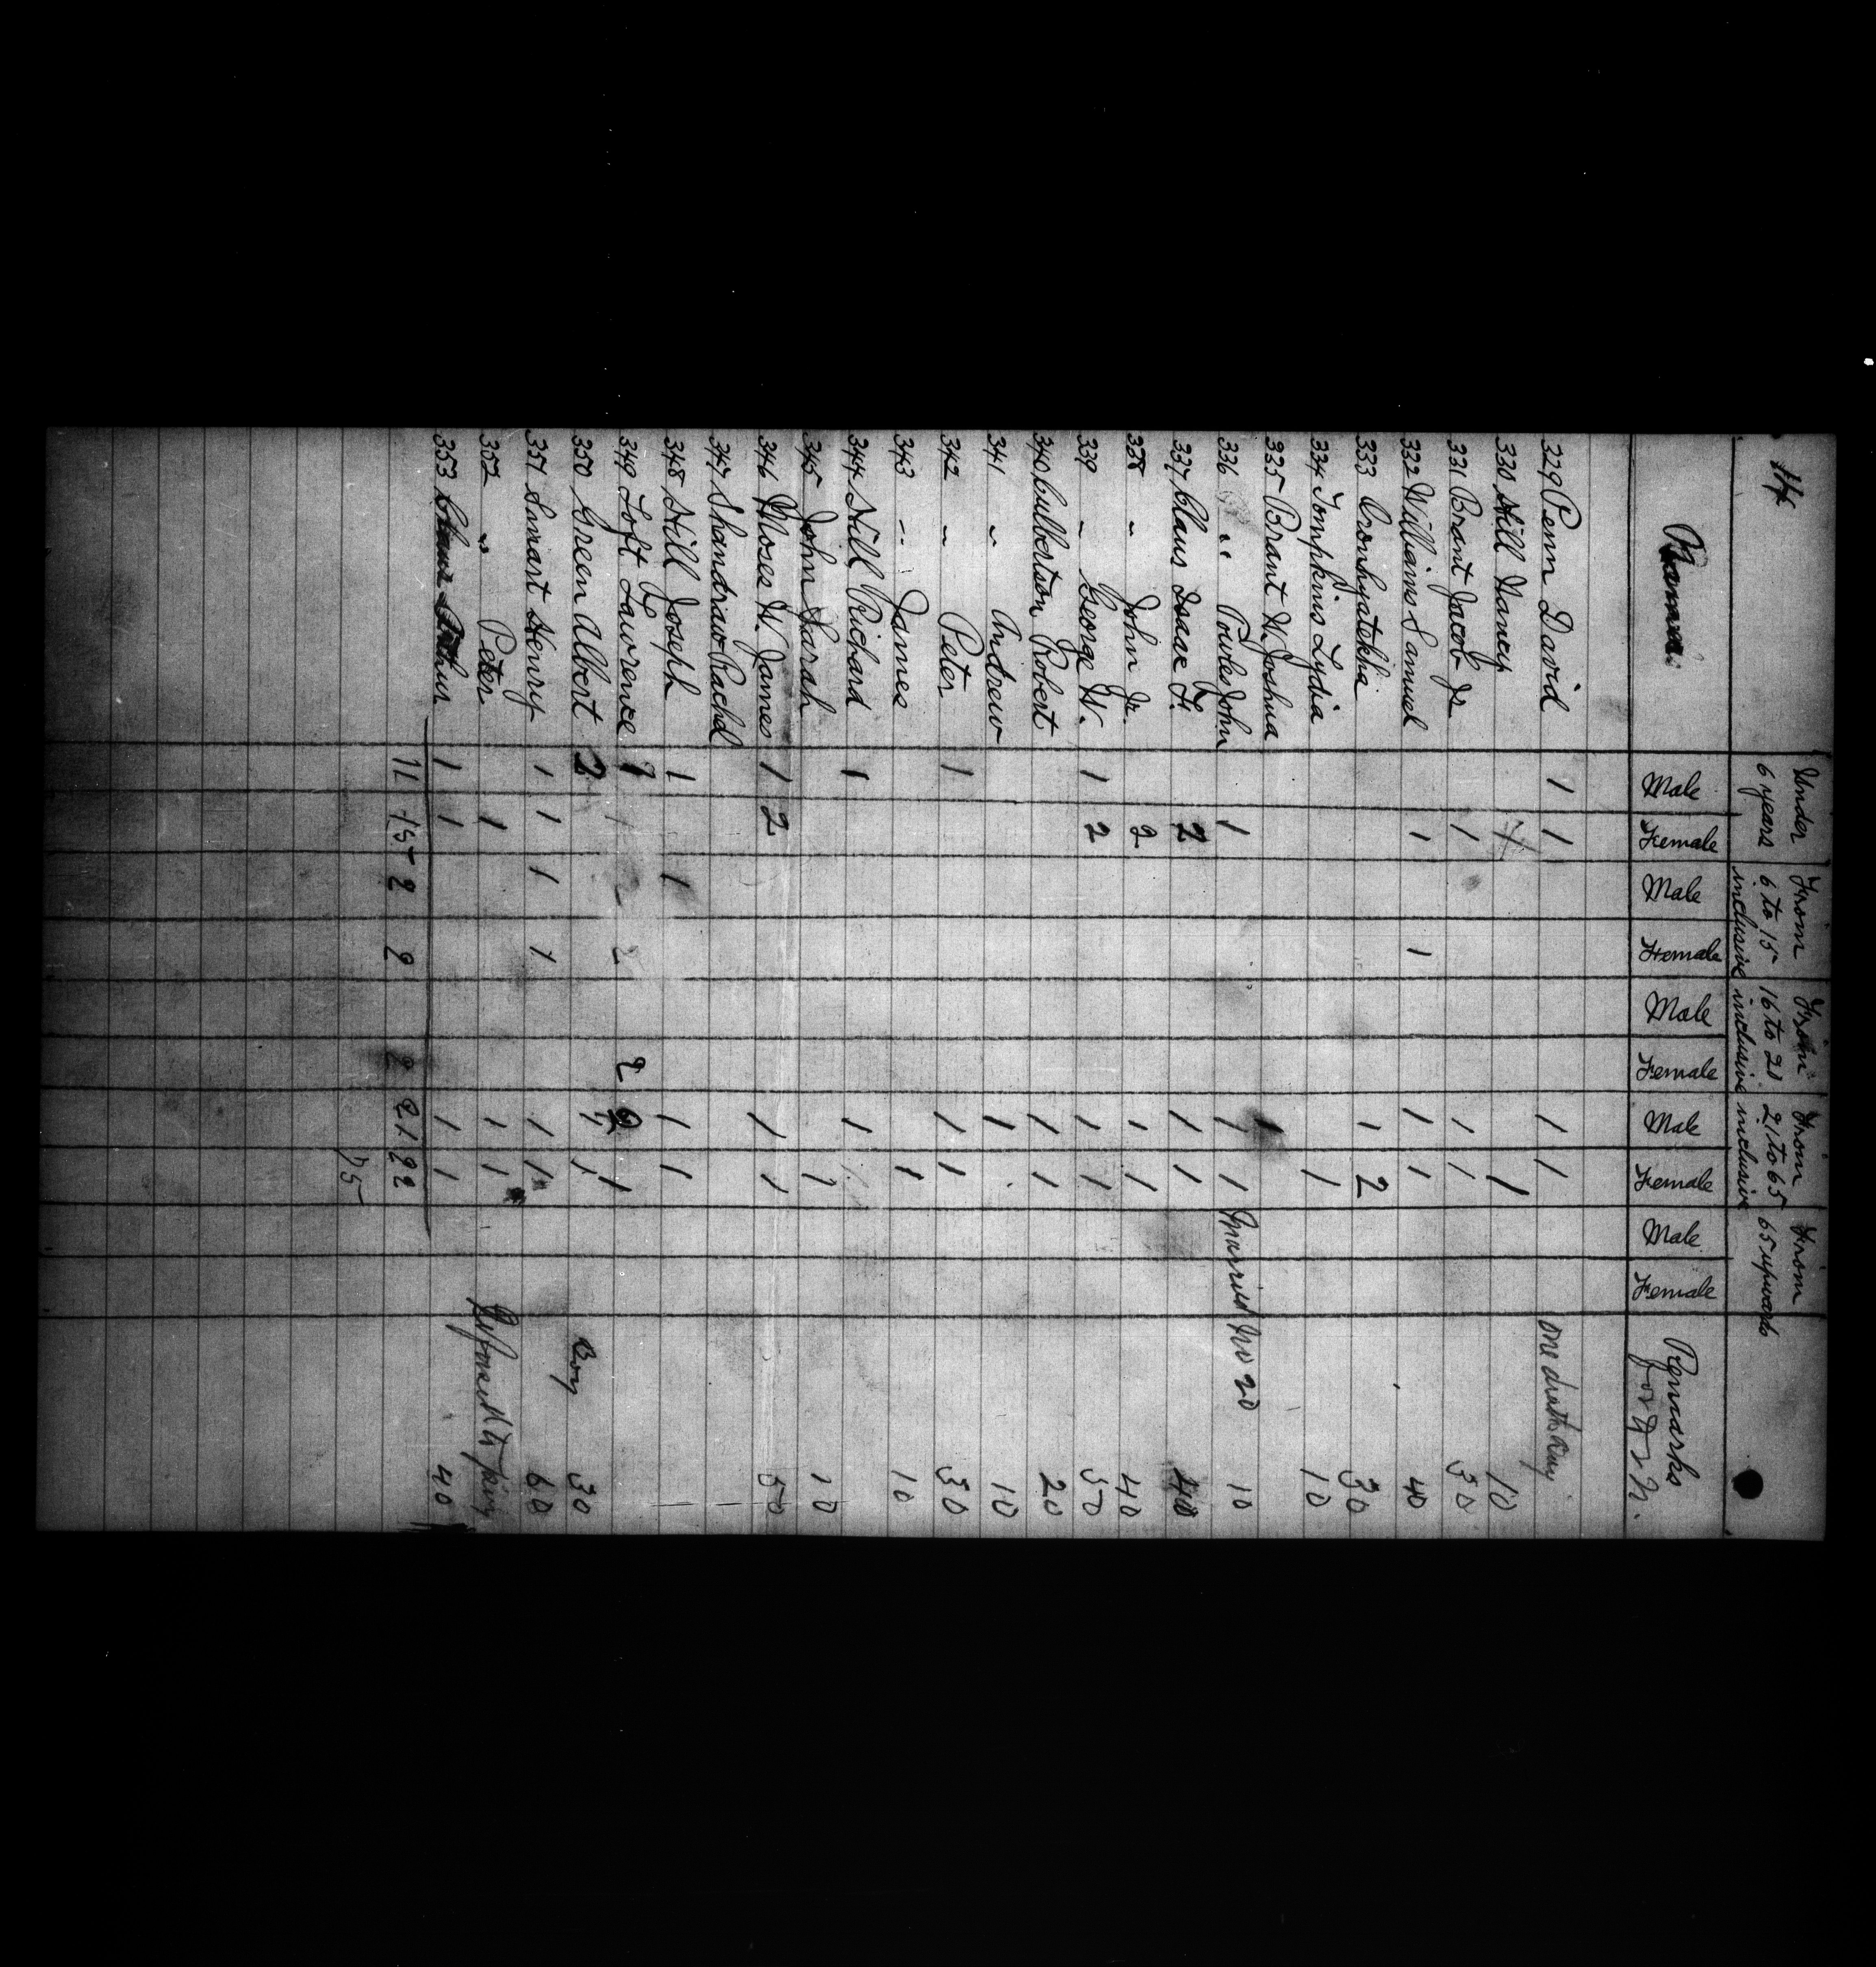 14
Under 6 years From 6 to 15 inclusive From 16 to 20 inclusive From 21 to 65 inclusive From 65 upwards
Names Male Female Male Female Male Female Male Female Male Female Remarks
329 Penn David 1 1 1 1 one death
330 Hill Nancy 1 10
331 Brant Jacob Jr 1 1 1 30
332 Williams Samuel 1 1 1 1 40
333 Oronhyatekha 1 2 30
334 Tompkins Lydia 1 10
335 Brant W. Joshua 1
336 " Powles John 1 1 1 married No 20 10
337 Claus Isaac H. 2 1 1 40
338 " John Jr. 2 1 1 40
339 " George W. 1 2 1 1 50
340 Culbertson Robert 1 1 20
341 " Andrew 1 10
342 " Peter 1 1 1 30
343 " James 1 10
344 Hill Richard 1 1
345 John Sarah 1 10
346 Moses W. James 1 2 1 1 50
347 Shandraw Rachel
348 Hill Joseph 1 1 1 1
349 Loft Lawrence 2 2 1
350 Green Albert 2 1 1 Boy 30
351 Smart Henry 1 1 1 1 1 1 60
352 " Peter 1 1 1
353 1 1 1 1 40
11 15 2 2 2 21 22
75